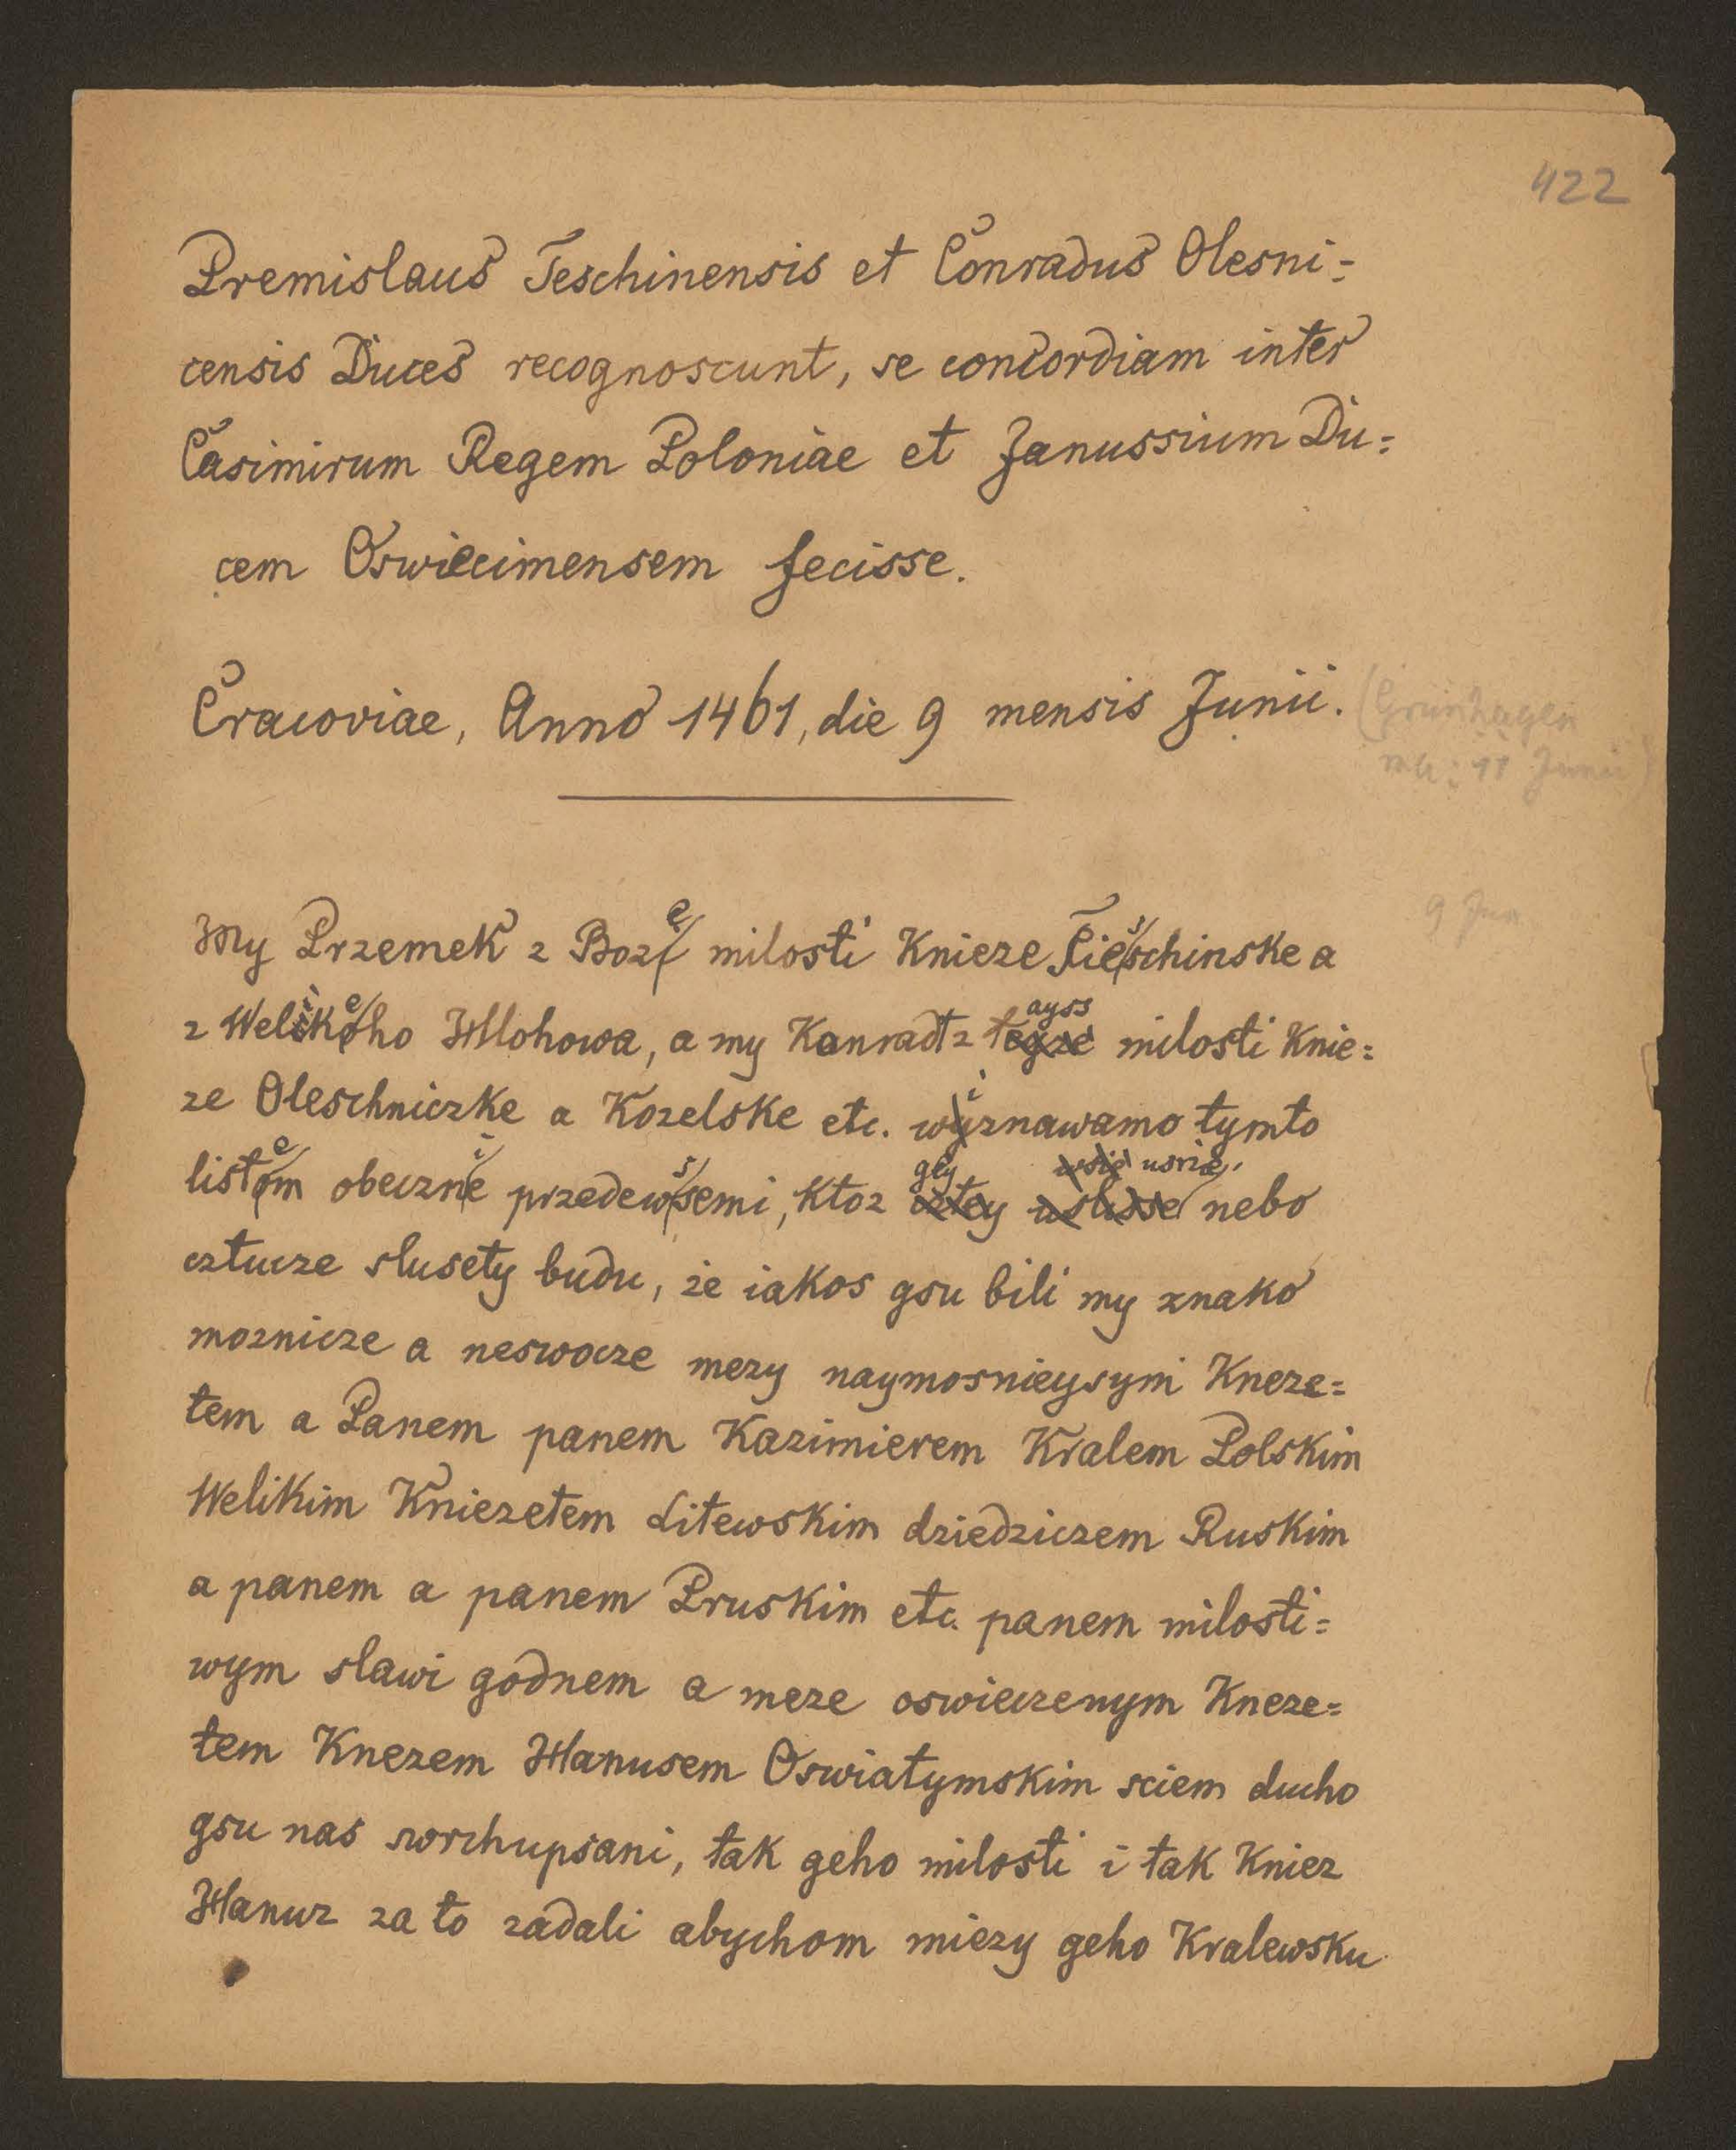 422
Premislaus Teschinensis et Conradus Olesni=
censis Duces recognoscunt, se concordiam inter
Casimirum Regem Poloniae et Janussium Du=
cem Oswiecimensem fecisse.
Cracoviae, Anno 1461, die 9 mensis Junii. (Grünhagen
11 Junii)
9 Jun.
My Przemek z Boze milosti Knieze Tieschinske a
z Welikeho Hlohowa, a my Konradt z tayss milosti Knie=
ze Oleschniczke a Kozelske etc. wiznawamo tymto
listem obeczni przedewssemi, ktoz gey usrze, nebo
cztucze slusety budu, że iakos gsu bili my znako
moznicze a neswocze mezy naymosnieysymi Kneze=
tem a Panem panem Kazimierem Kralem Polskim
Welikim Kniezetem Litewskim dziedziczem Ruskim
a panem a panem Pruskim etc. panem milosti=
wym slawi godnem a meze oswieczenym Kneze=
tem Knezem Hanusem Oswiatymskim sciem ducho
gsu nas sworchupsani, tak geho milosti i tak Kniez
Hanuz za to zadali abychom miezy geho Kralewsku